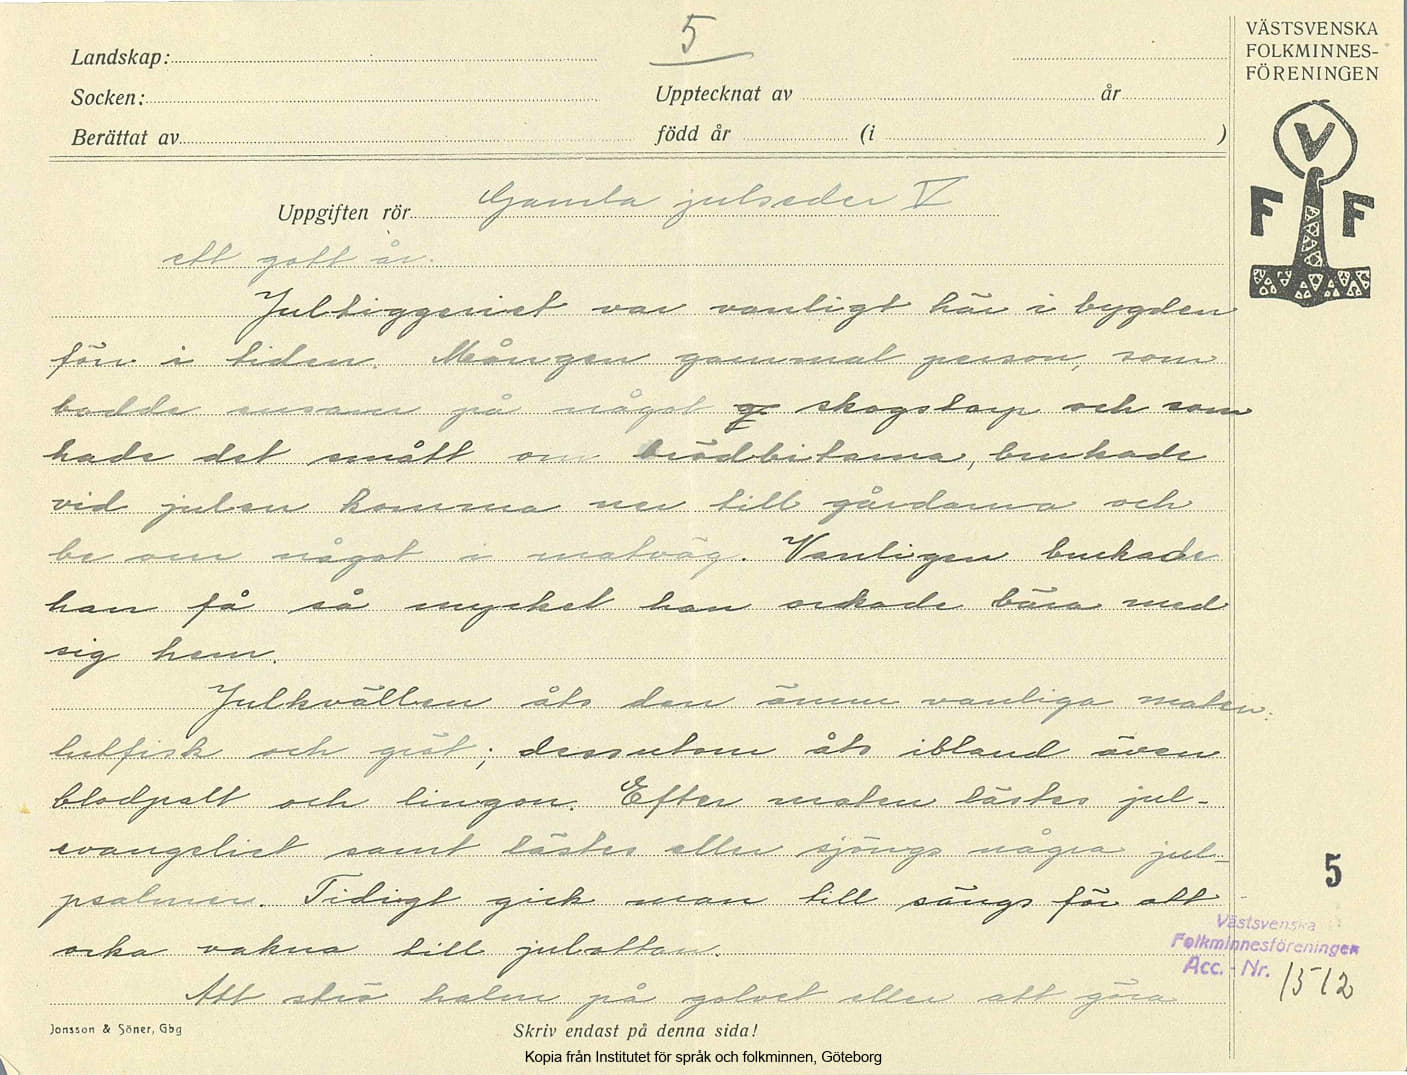 5
VÄSTSVENSKA
FOLKMINNES-
FÖRENINGEN
Landskap:
Socken:
Upptecknat av år
Berättat av född år (i )
V
F F
Uppgiften rör Gamla julseder V
ett gott år.
Jultiggeriet var vanligt här i bygden
förr i tiden. Mången gammal person, som
bodde ensam på något skogstorp och som
hade det smått om brödbitarna, brukade
vid julen komma ner till gårdarna och
be om något i matväg. Vanligen brukade
han få så mycket han orkade bära med
sig hem.
Julkvällen åts den ännu vanliga maten:
lutfisk och gröt; dessutom åts ibland även
blodpalt och lingon. Efter maten lästes jul-
evangeliet samt lästes eller sjöngs några jul-
psalmer. Tidigt gick man till sängs för att
orka vakna till julottan.
Att strö halm på golvet eller att göra
5
Västsvenska
Folkminnesföreningen
Acc. - Nr. 1512
Jonsson & Söner, Gbg
Skriv endast på denna sida!
Kopia från Institutet för språk och folkminnen, Göteborg